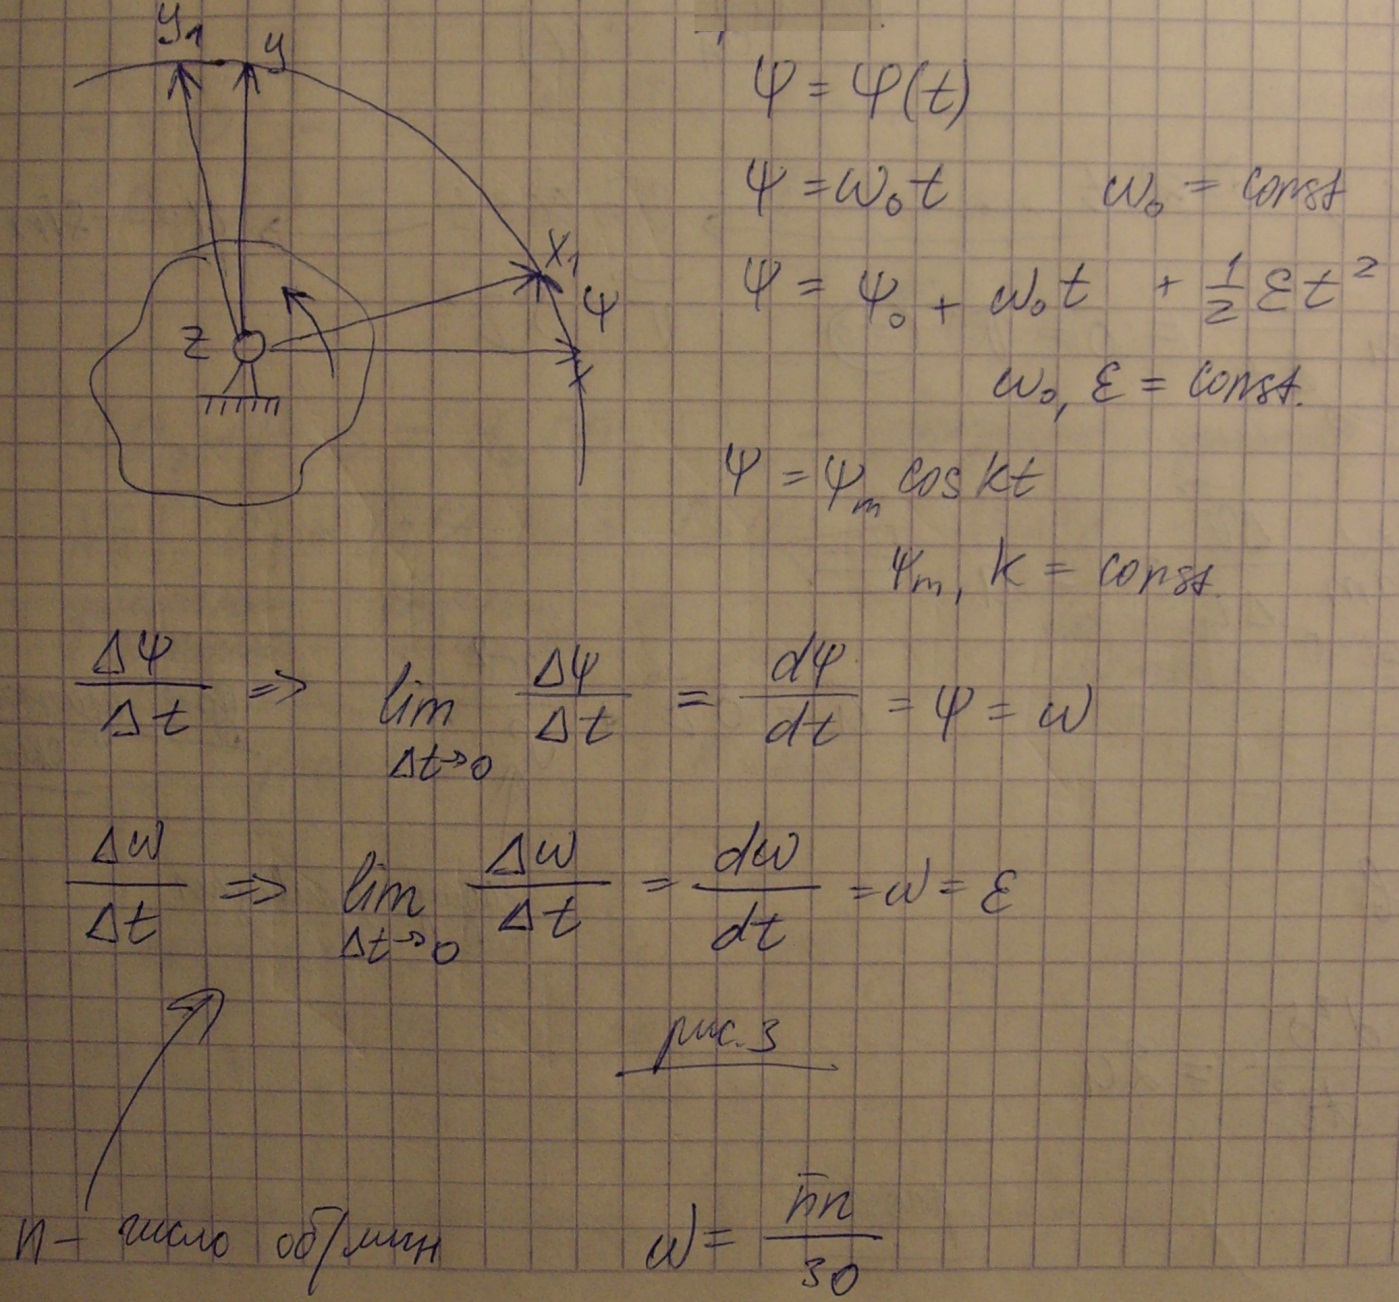 y₁ y
ψ = ψ(t)
ψ = ω₀t ω₀ = const
x₁
ψ
z
x
ψ = ψ₀ + ω₀t + 1/2 εt²
ω₀, ε = const.
ψ = ψₘ cos kt
ψₘ, k = const.
Δψ/Δt ⇒ lim Δt→0 Δψ/Δt = dψ/dt = ψ = ω
Δω/Δt ⇒ lim Δt→0 Δω/Δt = dω/dt = ω = ε
рис. 3
n – число об/мин ω = πn/30